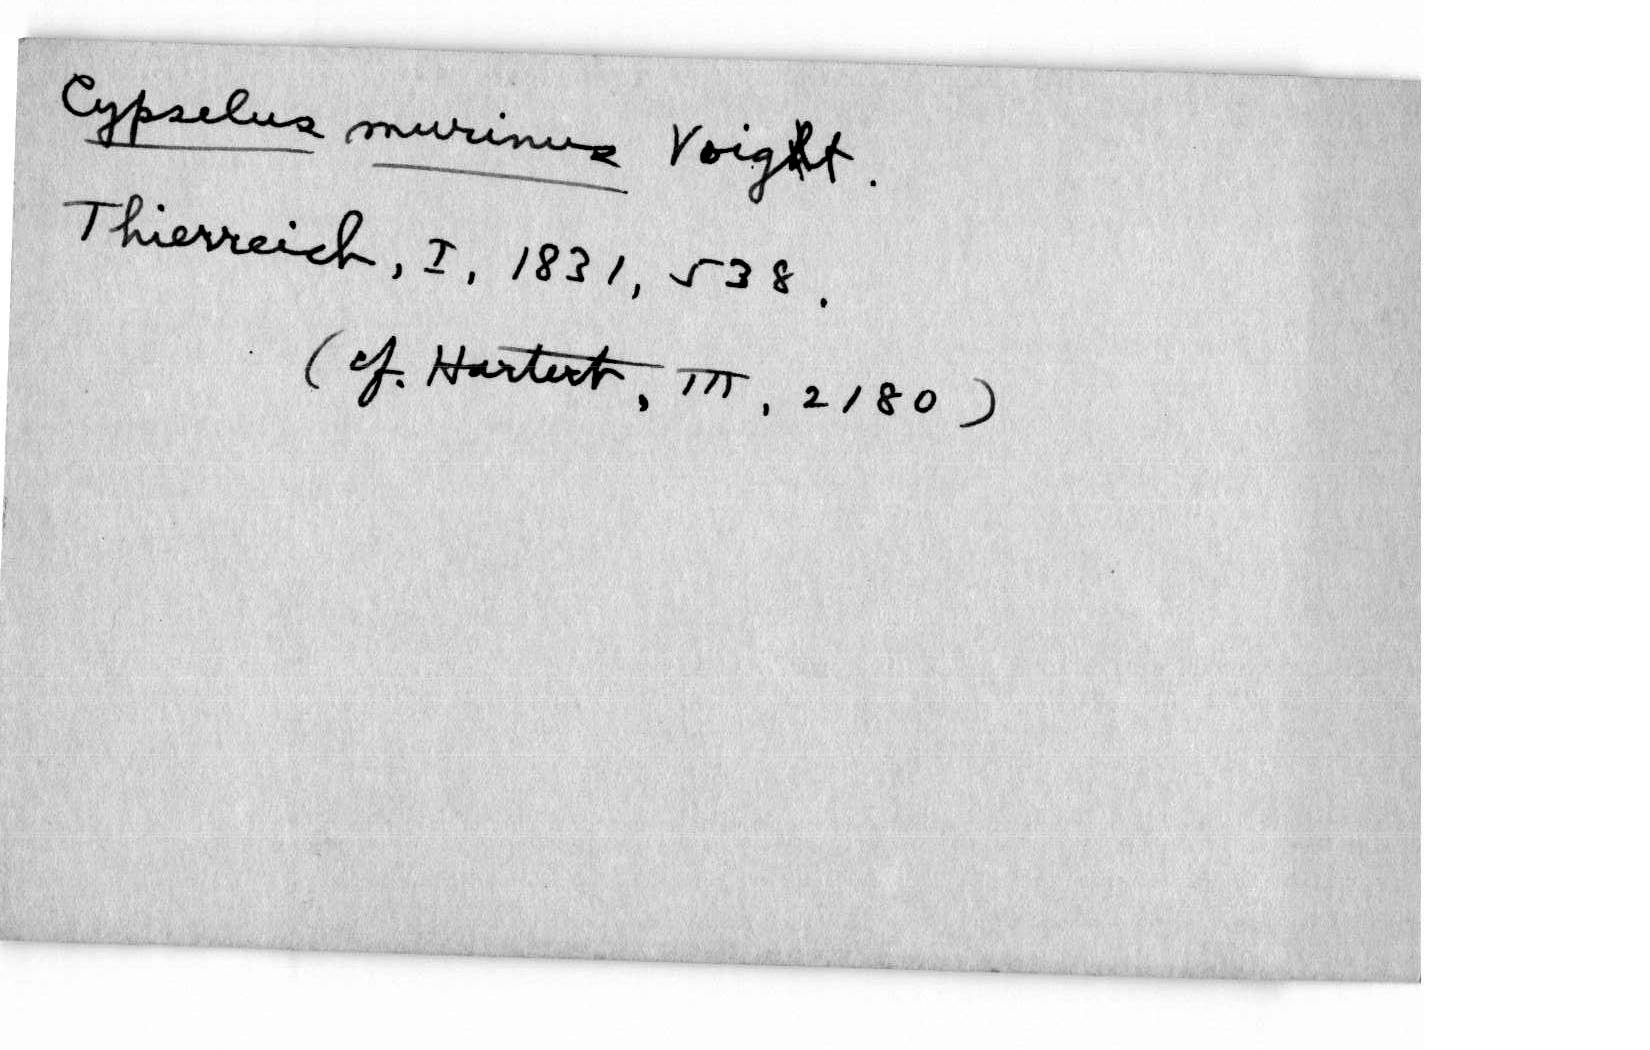 Cypselus murinus Voigt.
Thierreich, I, 1831, 538.
(cf. Hartert, III, 2180)